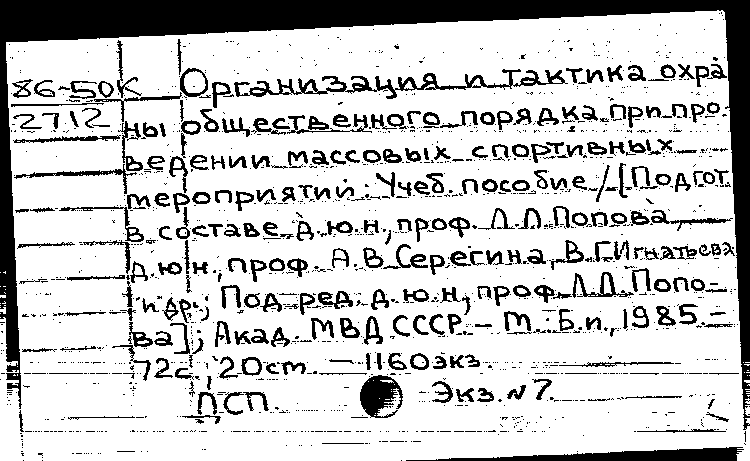 86-50К Организация и тактика охра
2712 ны общественного порядка при про-
ведении массовых спортивных
мероприятий: Учеб. пособие / [Подгот.
в составе д.ю.н., проф. Л.Л.Попова,
д.ю.н., проф. А.В.Серегина, В.Г.Игнатьева
и др.; Под ред. д.ю.н., проф. Л.Л.Попо-
ва]; Акад. МВД СССР. - М.: Б.и., 1985. -
72с.; 20см. - 1160экз.
ПСП. Экз. N 7.